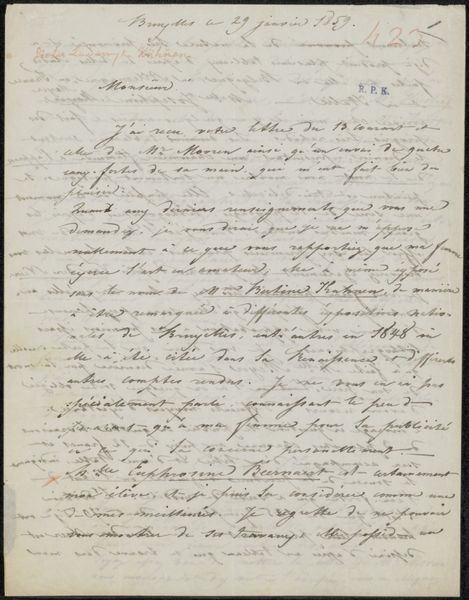 Bruxelles le 29 janvier 1859.
423
Monsieur
R.P.K.
J'ai reçu votre lettre du 13 courant et
celle de Mr ainsi qu'un envoi de quatre
eaux-fortes de sa main, qui m'ont fait
plaisir.
Quant aux derniers renseignements que vous me
demandez, je vous dirai que je ne m'oppose
nullement à ce que vous rapportiez que ma femme
exerce l'art en amateur, elle a même exposé
sous le nom de de manière
à être remarquée à différentes expositions natio-
nales de Bruxelles, entr'autres en 1848 où
elle a été citée dans la Renaissance et différents
autres comptes rendus. Je ne vous en ai pas
spécialement parlé connaissant le peu
qu'a ma femme pour la publicité
en ce qui la concerne personnellement.
Mlle Euphrosine Beernaert est certainement
mon élève, et je puis la considérer comme une
de mes meilleures. Je regrette de ne pouvoir
vous montrer de ses travaux, elle possède un